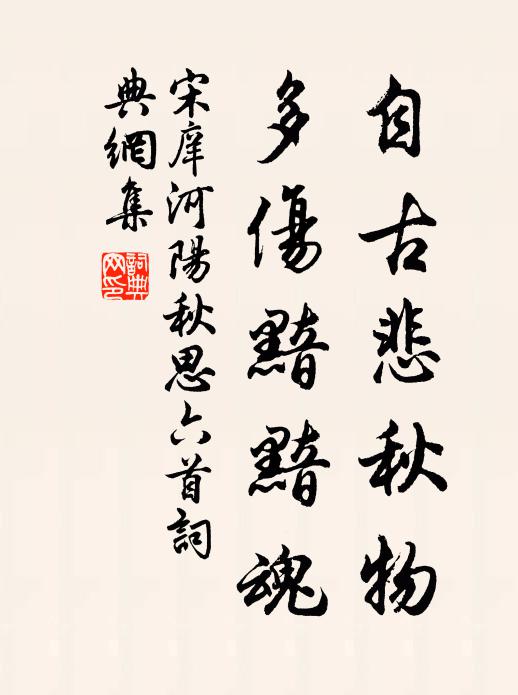 自古悲秋物
多傷黯黯魂
宋庠河陽秋思六首詞
典網集
詞典網印